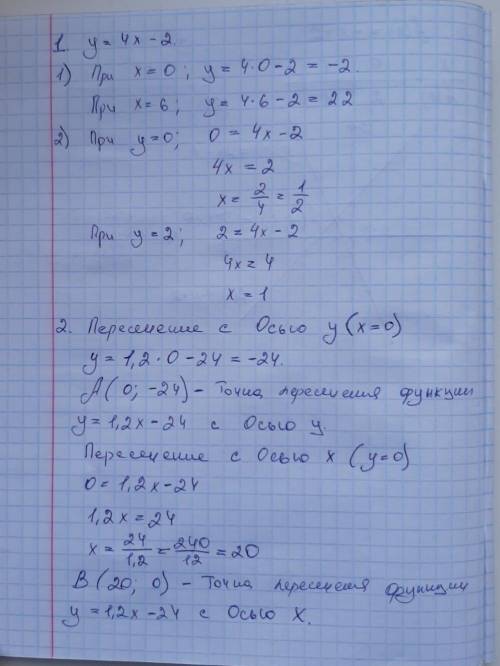 1. y = 4x - 2.
1) При x = 0; y = 4·0 - 2 = -2.
При x = 6; y = 4·6 - 2 = 22
2) При y = 0; 0 = 4x - 2
4x = 2
x = 2/4 = 1/2
При y = 2; 2 = 4x - 2
4x = 4
x = 1
2. Пересечение с Осью y (x = 0)
y = 1,2·0 - 24 = -24.
A (0; -24) - Точка пересечения функции
y = 1,2x - 24 с Осью y.
Пересечение с Осью x (y = 0)
0 = 1,2x - 24
1,2x = 24
x = 24/1,2 = 240/12 = 20
B (20; 0) - Точка пересечения функции
y = 1,2x - 24 с Осью X.